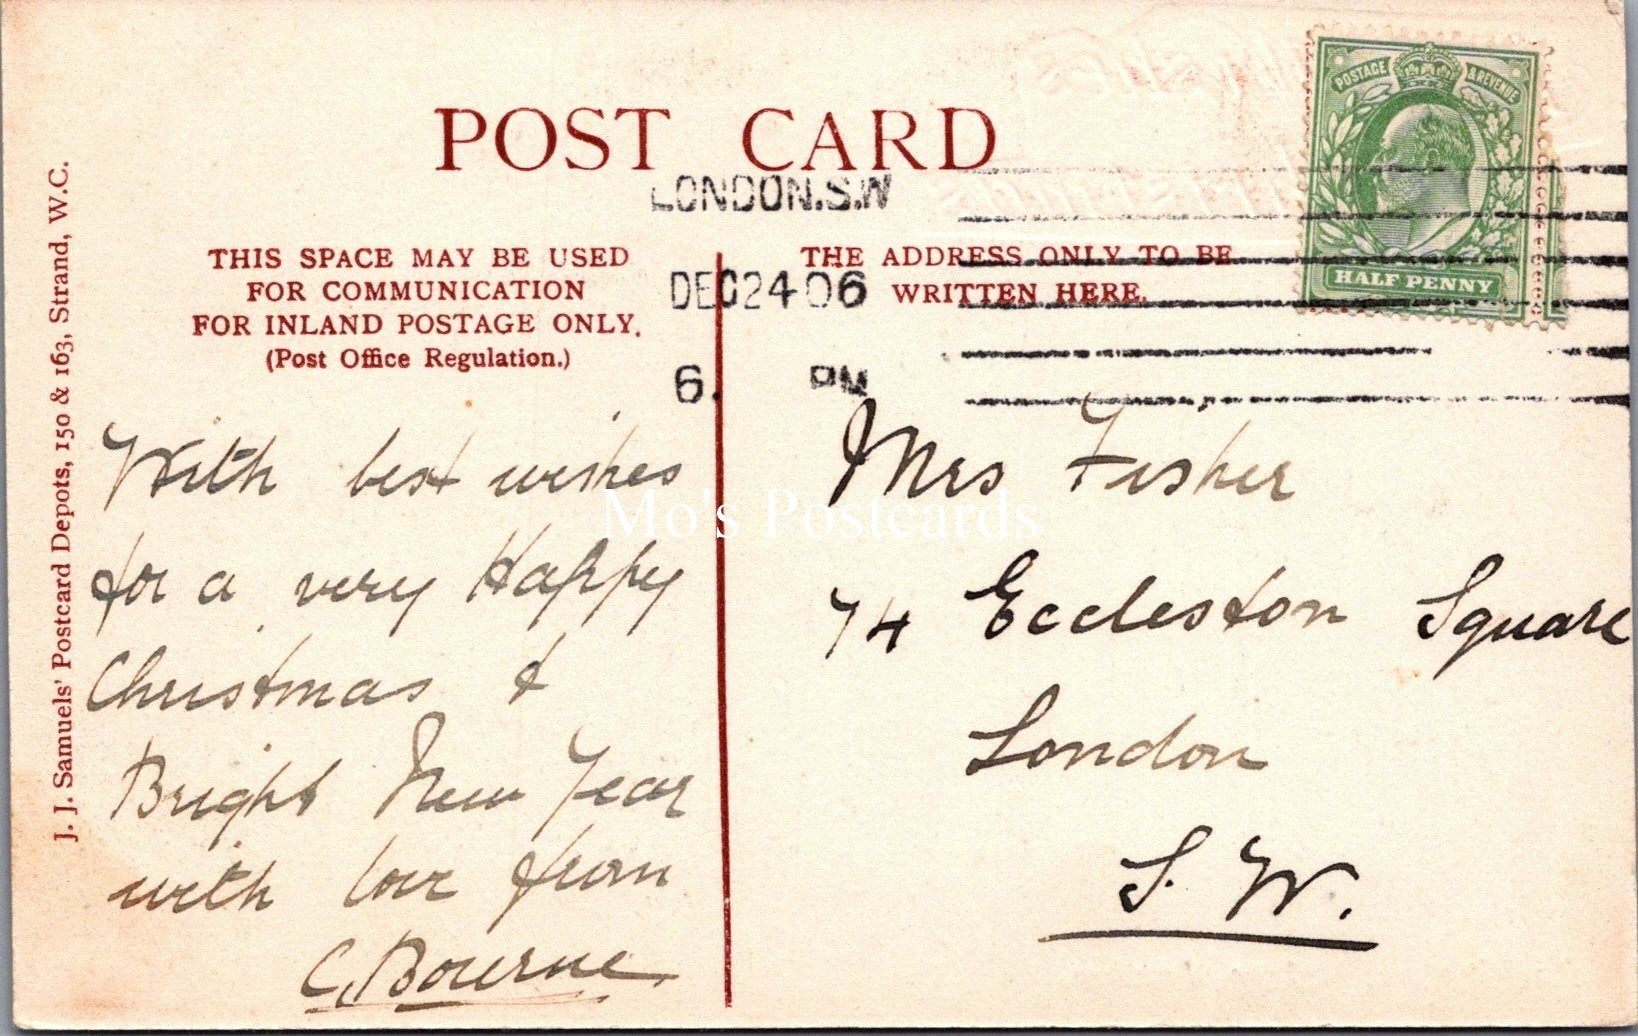 POST CARD
POSTAGE & REVENUE
HALF PENNY
LONDON.S.W
DEC 24 06
6. PM
THIS SPACE MAY BE USED
FOR COMMUNICATION
FOR INLAND POSTAGE ONLY.
(Post Office Regulation.)
THE ADDRESS ONLY TO BE
WRITTEN HERE.
J. J. Samuels' Postcard Depots, 150 & 163, Strand, W.C.
With best wishes
for a very Happy
Christmas &
Bright New Year
with love from
C. Bourne
Mrs Fisher
74 Eccleston Square
London
S. W.
Mo's Postcards